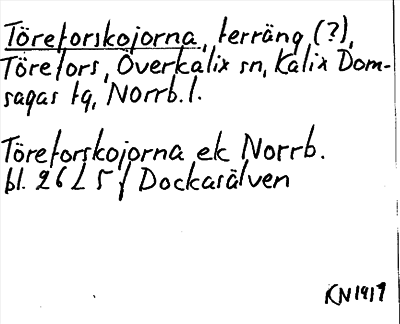 Töreforskojorna, terräng (?),
Törefors, Överkalix sn, Kalix Dom-
sagas tg, Norrb. l.
Töreforskojorna ek Norrb.
bl. 26 L 5 f Dockasälven
KN 1917